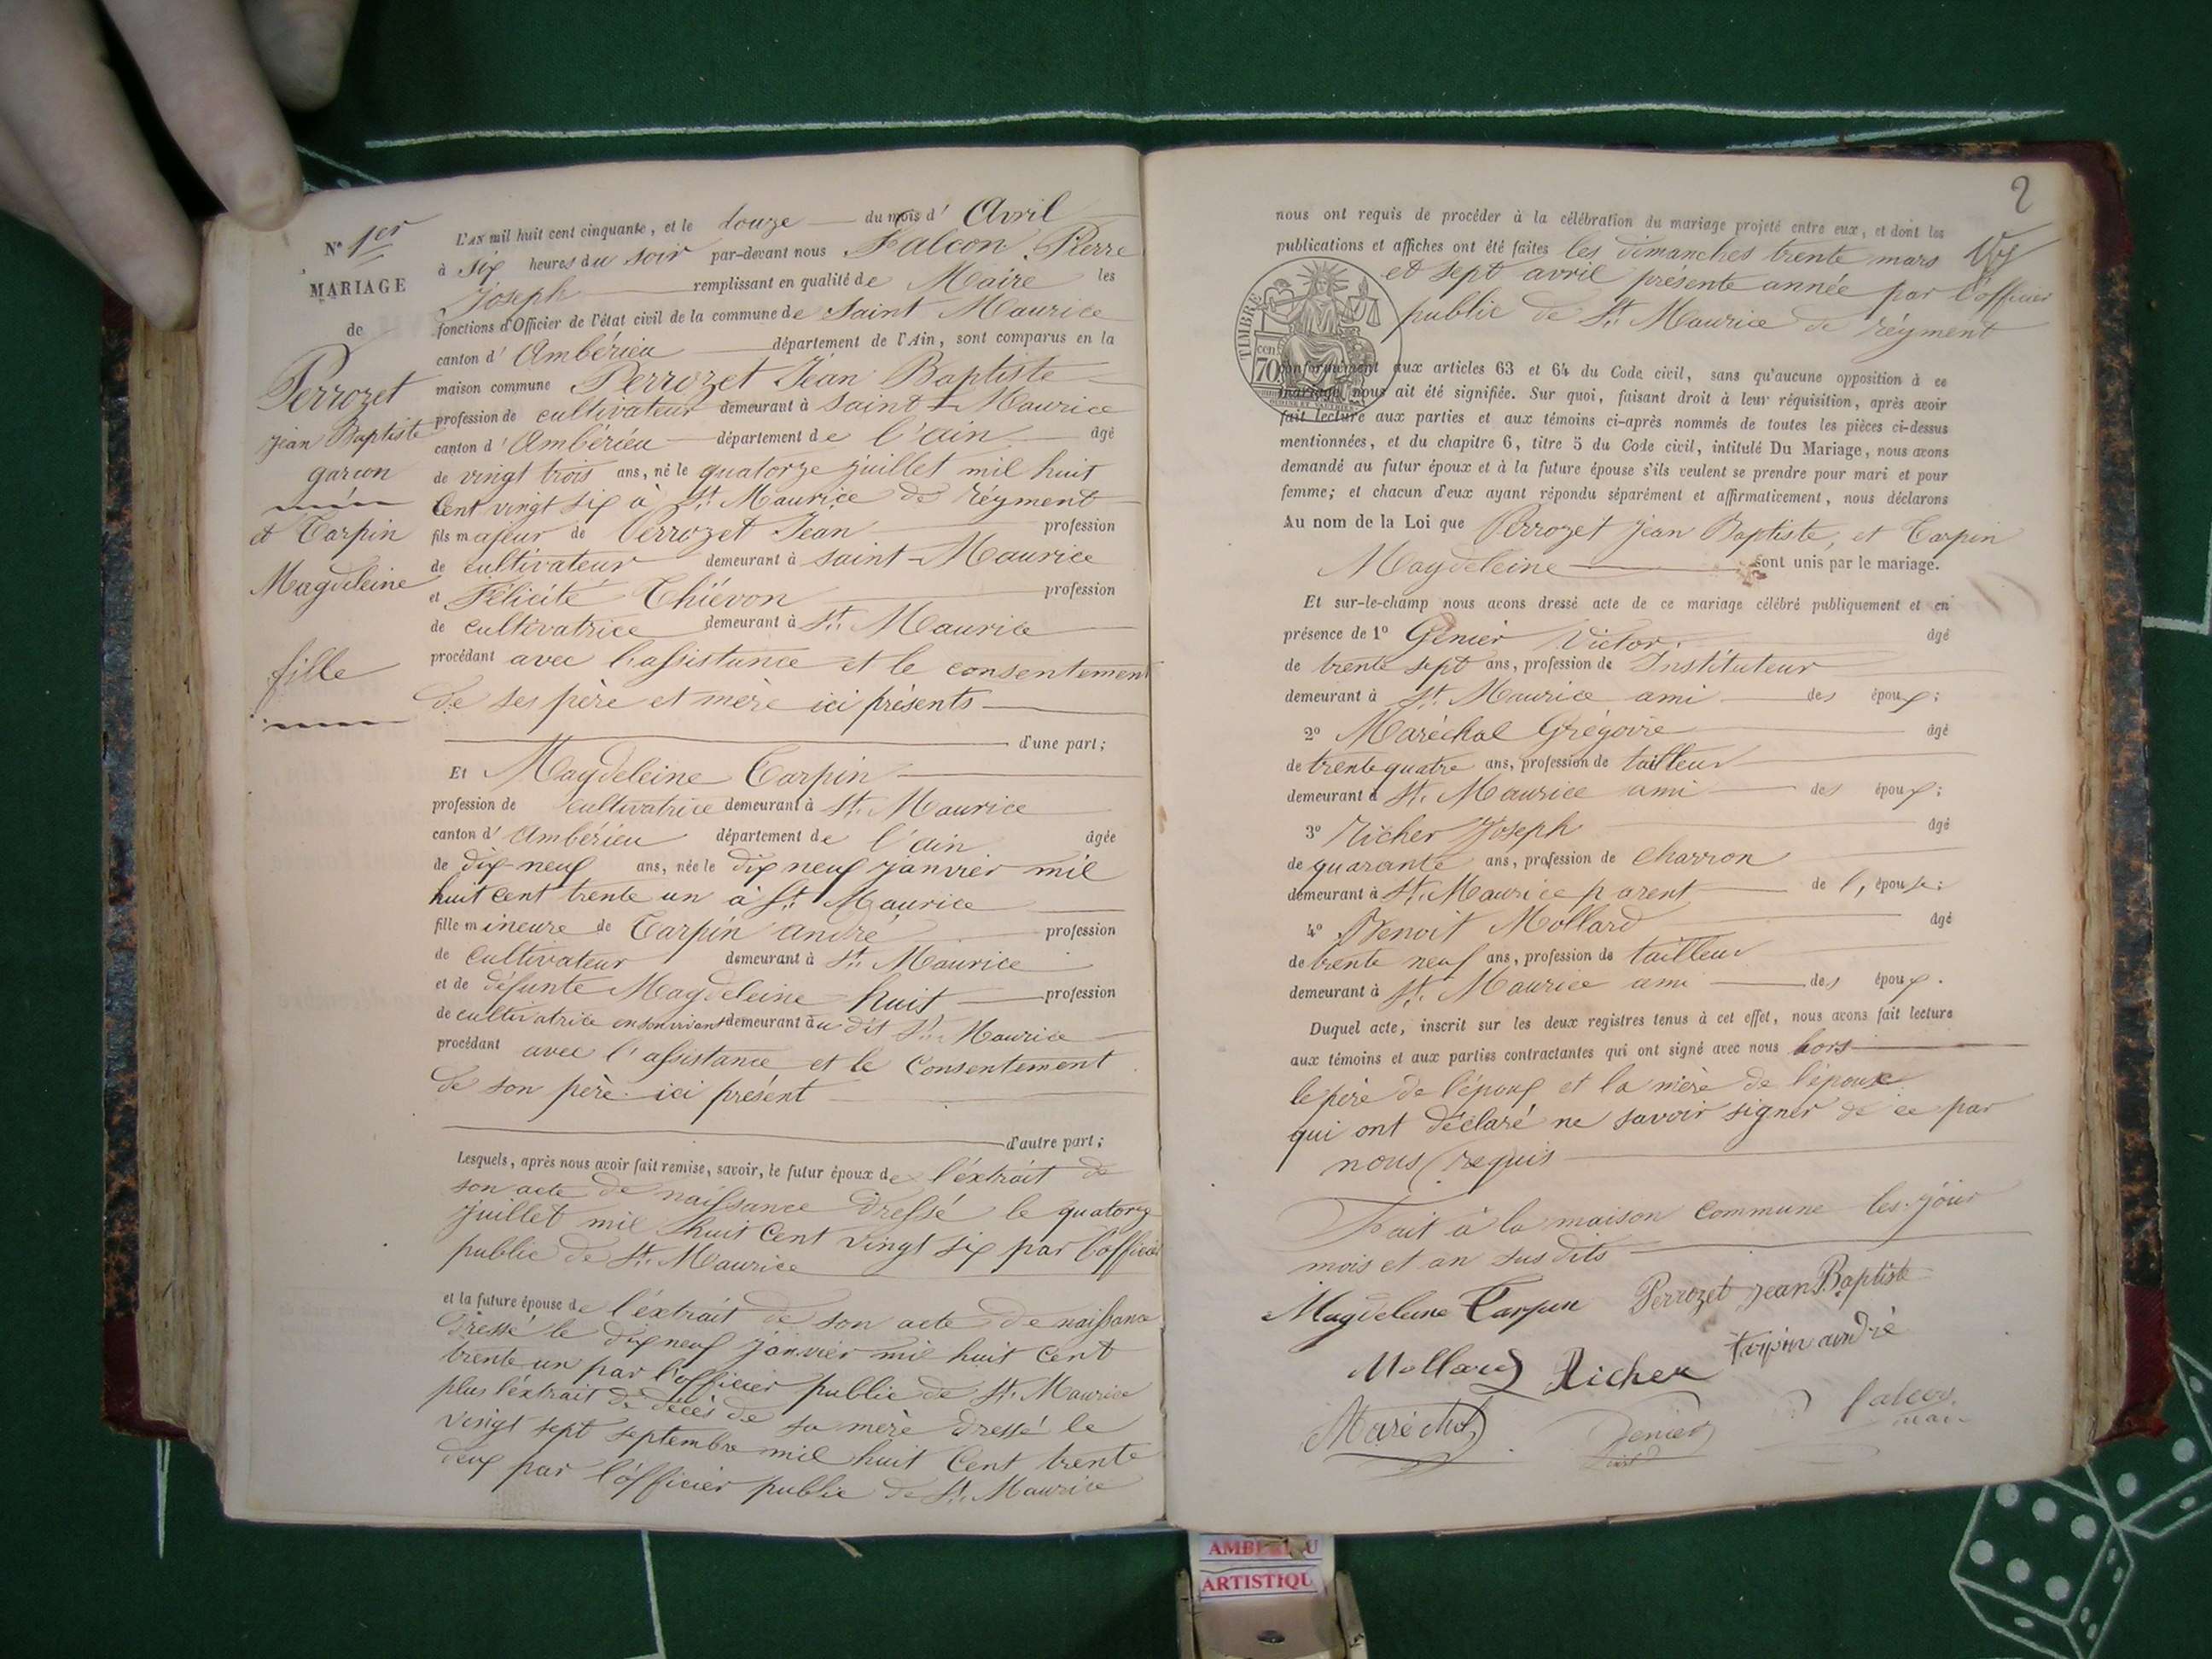 N° 1er
MARIAGE
de
Perrozet
Jean Baptiste
garçon
et Carpin
Magdeleine
fille
L'AN mil huit cent cinquante, et le douze du mois d' Avril
à six heures du soir par-devant nous Falcon Pierre
Joseph remplissant en qualité de Maire les
fonctions d'Officier de l'état civil de la commune de Saint Maurice
canton d' Ambérieu département de l'Ain, sont comparus en la
maison commune Perrozet Jean Baptiste
profession de cultivateur demeurant à Saint-Maurice
canton d' Ambérieu département de l'ain âgé
de vingt trois ans, né le quatorze juillet mil huit
Cent vingt six à St. Maurice de Réyment
fils majeur de Perrozet Jean profession
de cultivateur demeurant à saint-Maurice
et Félicité Thiévon profession
de cultivatrice demeurant à St. Maurice
procédant avec l'assistance et le consentement
de ses père et mère ici présents
d'une part;
Et Magdeleine Carpin
profession de cultivatrice demeurant à St. Maurice
canton d' Ambérieu département de l'ain âgée
de dix-neuf ans, née le dix neuf janvier mil
huit cent trente un à St. Maurice
fille mineure de Carpin andré profession
de cultivateur demeurant à St. Maurice
et de défunte Magdeleine huit profession
de cultivatrice en son vivant demeurant au dit St. Maurice
procédant avec l'assistance et le Consentement
de son père ici présent
d'autre part;
Lesquels, après nous avoir fait remise, savoir, le futur époux de l'éxtrait de
son acte de naissance dressé le quatorze
juillet mil huit Cent vingt six par l'officier
public de St. Maurice
et la future épouse de l'éxtrait de son acte de naissance
dressé le dix neuf janvier mil huit cent
trente un par l'officier public de St. Maurice
plus l'éxtrait de décès de sa mère dressé le
vingt sept septembre mil huit Cent trente
deux par l'officier public de St. Maurice
2
nous ont requis de procéder à la célébration du mariage projeté entre eux, et dont les
publications et affiches ont été faites les dimanches trente mars
et sept avril présente année par l'officier
public de St. Maurice de réyment
TIMBRE
cen
70
conformément aux articles 63 et 64 du Code civil, sans qu'aucune opposition à ce
mariage nous ait été signifiée. Sur quoi, faisant droit à leur réquisition, après avoir
fait lecture aux parties et aux témoins ci-après nommés de toutes les pièces ci-dessus
mentionnées, et du chapitre 6, titre 5 du Code civil, intitulé Du Mariage, nous avons
demandé au futur époux et à la future épouse s'ils veulent se prendre pour mari et pour
femme; et chacun d'eux ayant répondu séparément et affirmativement, nous déclarons
Au nom de la Loi que Perrozet jean Baptiste, et Carpin
Magdeleine sont unis par le mariage.
Et sur-le-champ nous avons dressé acte de ce mariage célébré publiquement et en
présence de 1° Génier Victor, âgé
de trente sept ans, profession de Instituteur
demeurant à St. Maurice ami des époux;
2° Maréchal Grégoire âgé
de trente quatre ans, profession de tailleur
demeurant à St. Maurice ami des époux;
3° Richer Joseph âgé
de quarante ans, profession de charron
demeurant à St. Maurice parent de l'épouse;
4° Benoit Mollard âgé
de trente neuf ans, profession de tailleur
demeurant à St. Maurice ami des époux.
Duquel acte, inscrit sur les deux registres tenus à cet effet, nous avons fait lecture
aux témoins et aux parties contractantes qui ont signé avec nous hors
le père de l'époux et la mère de l'époux
qui ont déclaré ne savoir signer de ce par
nous requis
Fait à la maison commune les jour
mois et an susdits
Magdeleine Carpin Perrozet Jean Baptiste
Mollard Richer andré
Maréchal Génier Falcon
AMBERIEU
ARTISTIQU